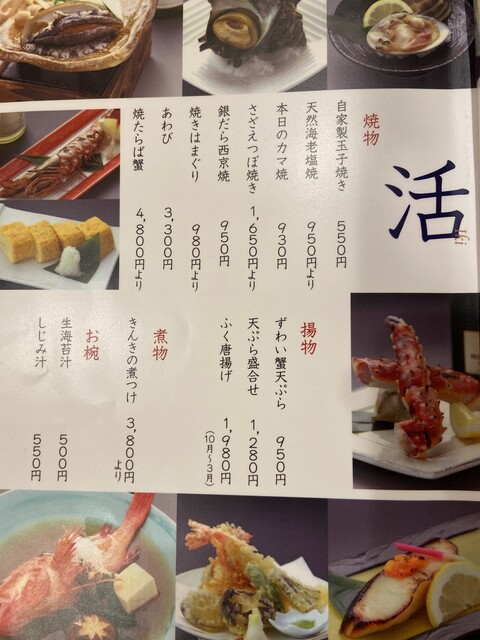 活
焼物
自家製玉子焼き 550円
天然海老塩焼 950円より
本日のカマ焼 930円
さざえつぼ焼き 1,650円より
銀だら西京焼 950円
焼きはまぐり 980円より
あわび 3,300円
焼たらば蟹 4,800円より
揚物
ずわい蟹天ぷら 950円
天ぷら盛合せ 1,280円
ふく唐揚げ 1,980円
(10月〜3月)
煮物
きんきの煮つけ 3,800円より
お椀
生海苔汁 500円
しじみ汁 550円